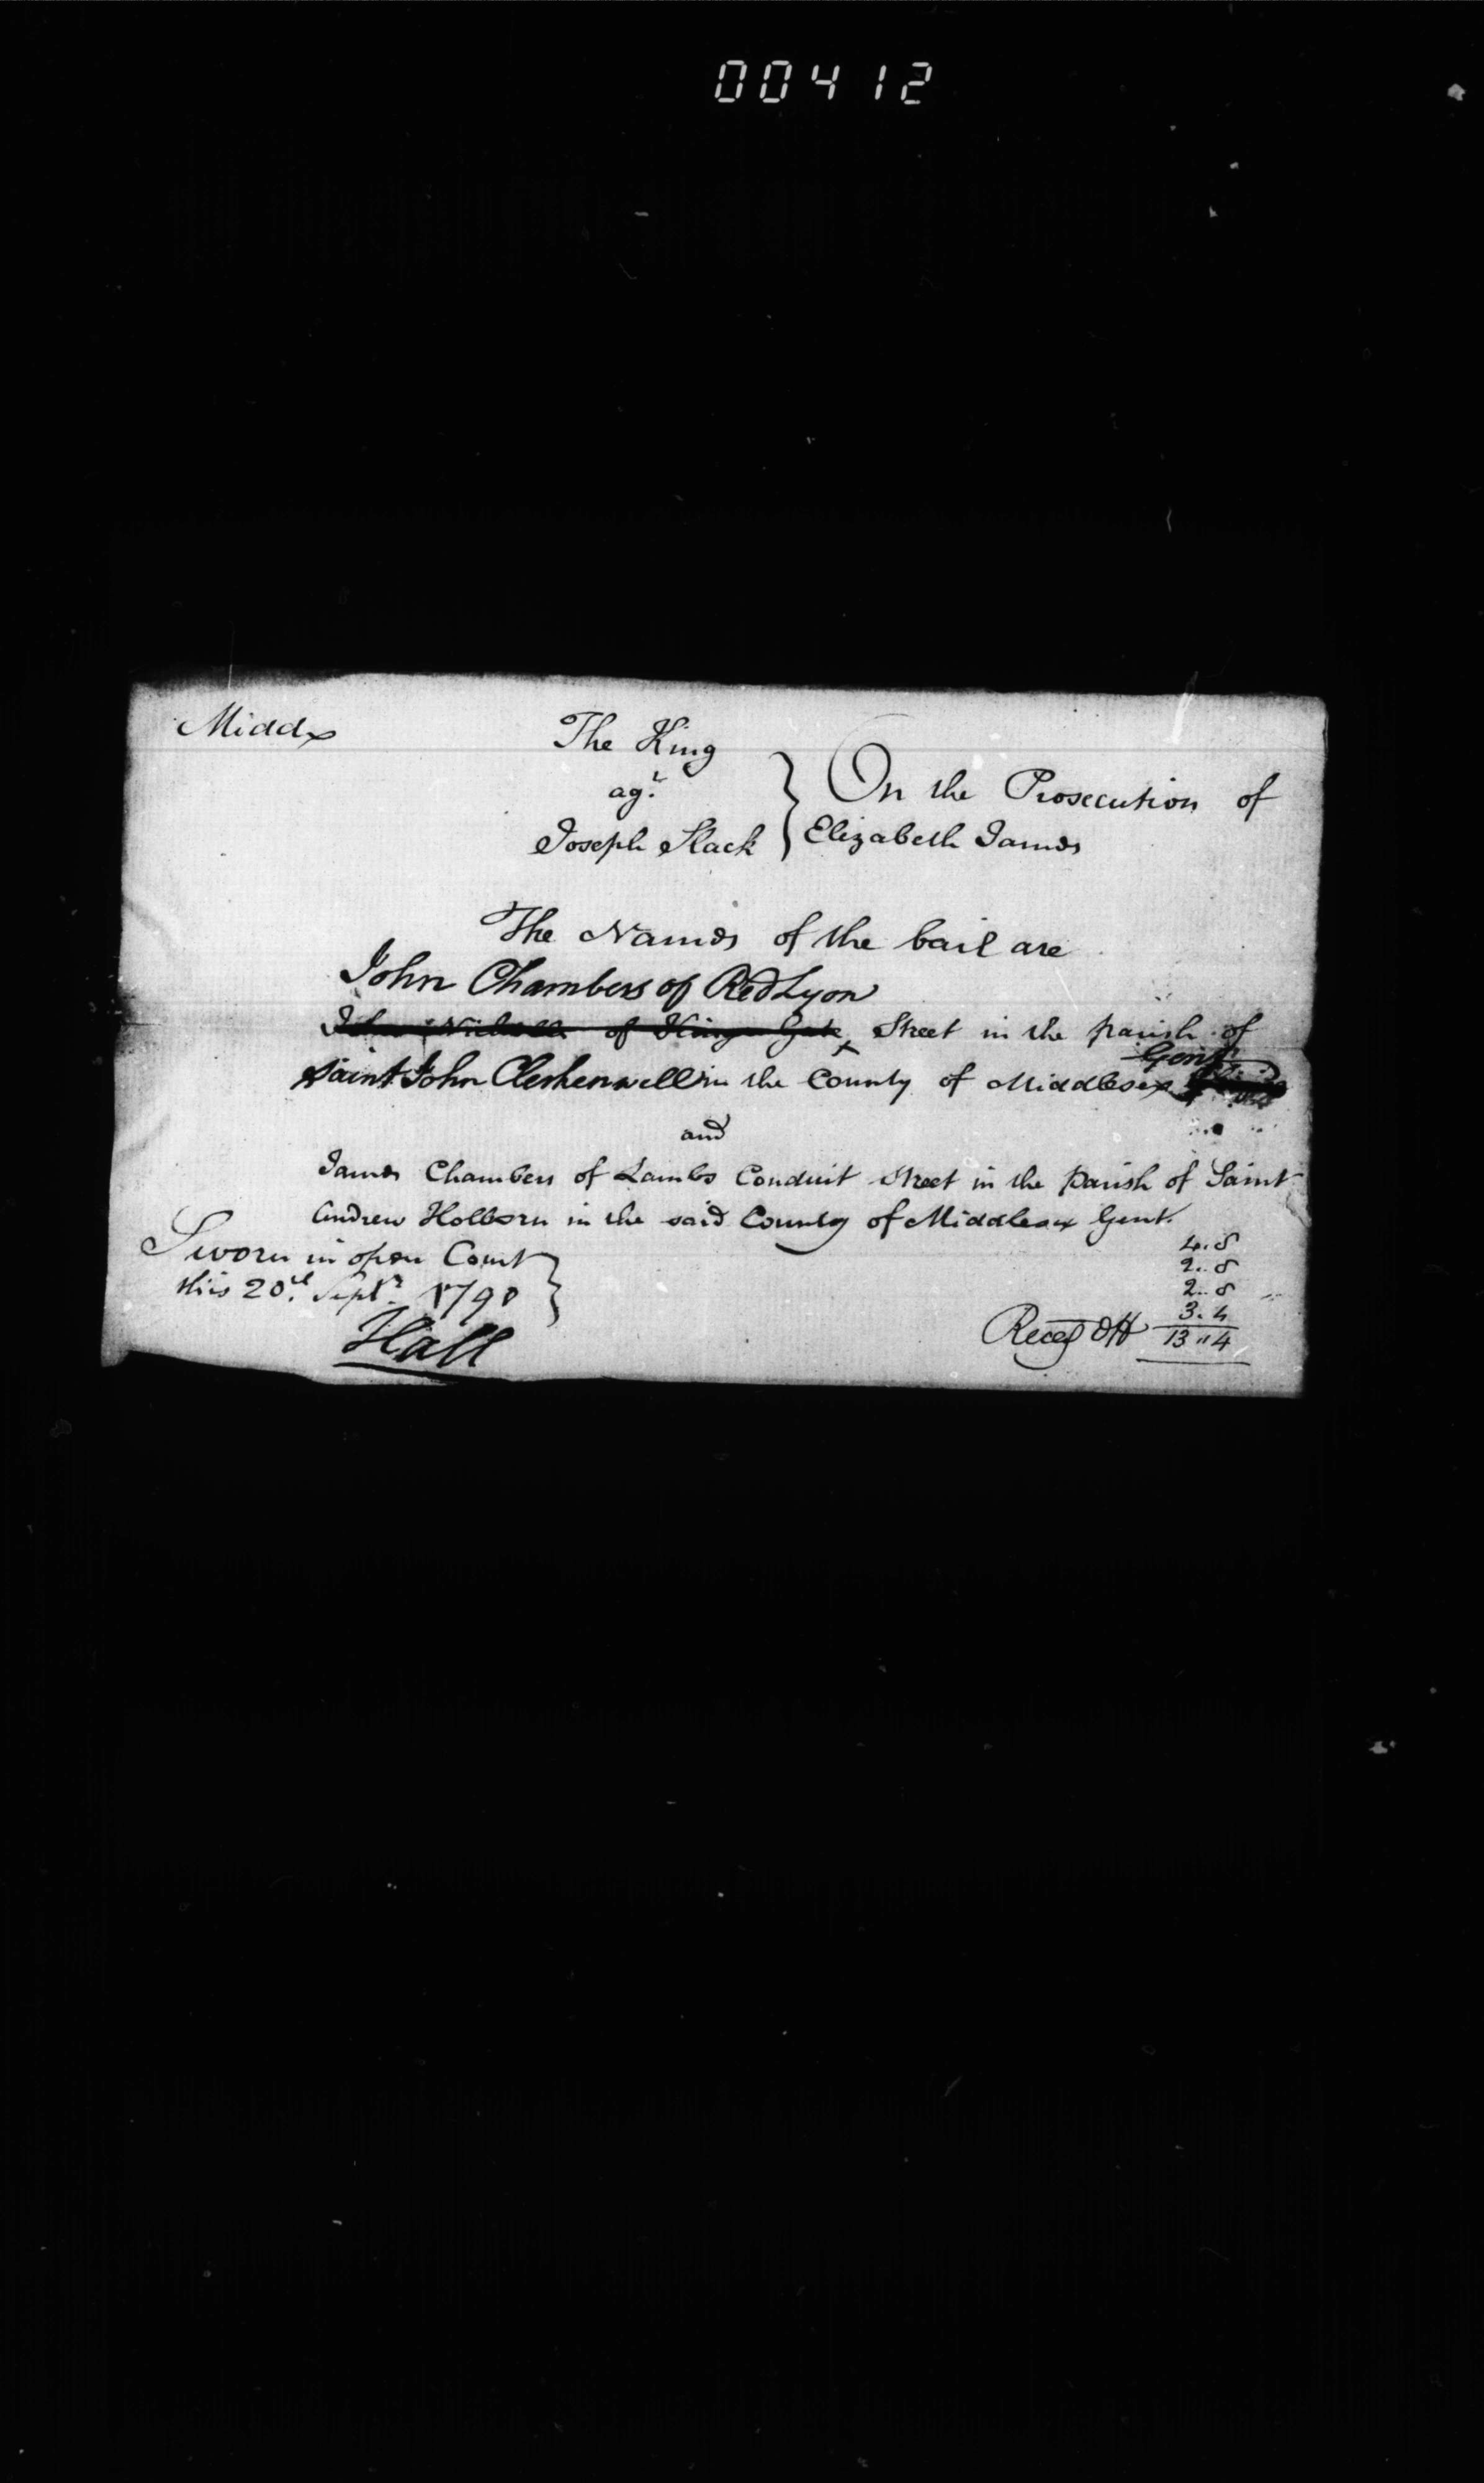 00412
Middx
The King
agt.
Joseph Slack
} On the Prosecution of
Elizabeth James
The Names of the bail are
John Chambers of Red Lyon
John Nicholls of Kings Gate Street in the parish of
Gent.
Saint John Clerkenwell in the County of Middlesex
and
James Chambers of Lambs Conduit Street in the Parish of Saint
Andrew Holborn in the said County of Middlesex Gent.
Sworn in open Court
this 20th. Septr. 1790 }
Hall
4..8
2..8
2..8
3..4
Reced 13"4